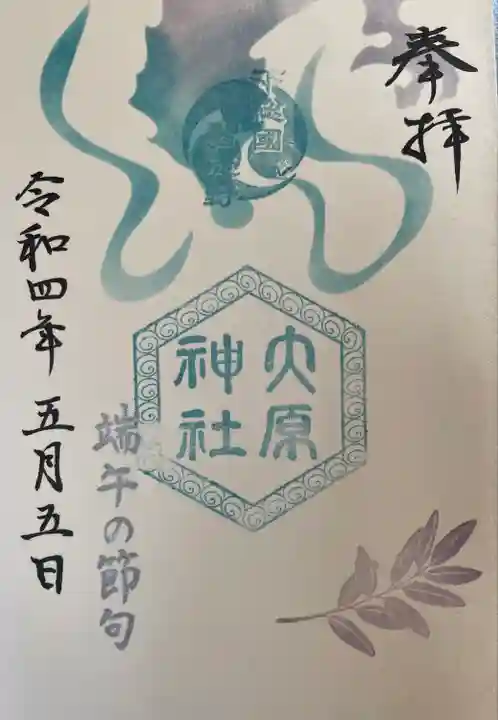 奉拝
大原
神社
端午の節句
令和四年 五月五日